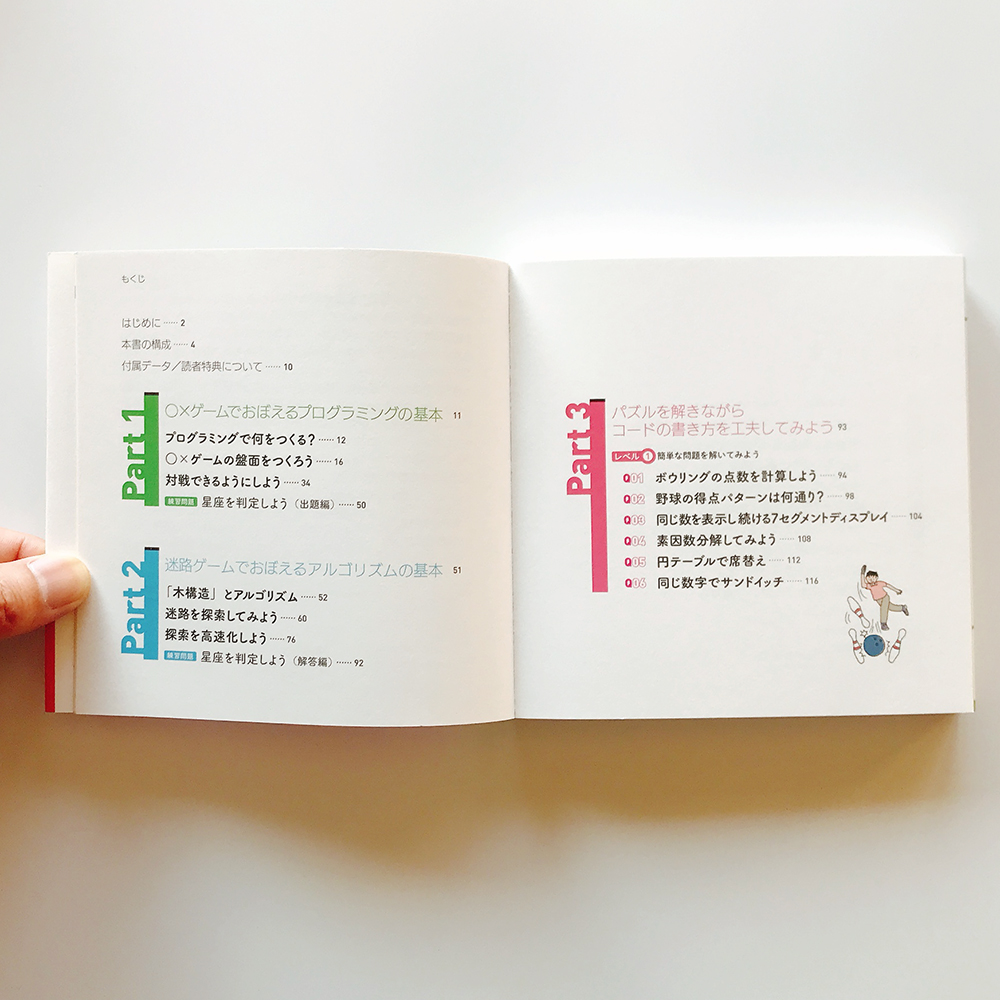 もくじ
はじめに …… 2
本書の構成 …… 4
付属データ／読者特典について …… 10
Part 1
○×ゲームでおぼえるプログラミングの基本 11
プログラミングで何をつくる？ …… 12
○×ゲームの盤面をつくろう …… 16
対戦できるようにしよう …… 34
練習問題 星座を判定しよう（出題編）…… 50
Part 2
迷路ゲームでおぼえるアルゴリズムの基本 51
「木構造」とアルゴリズム …… 52
迷路を探索してみよう …… 60
探索を高速化しよう …… 76
練習問題 星座を判定しよう（解答編）…… 92
Part 3
パズルを解きながら
コードの書き方を工夫してみよう 93
レベル 1 簡単な問題を解いてみよう
Q01 ボウリングの点数を計算しよう …… 94
Q02 野球の得点パターンは何通り？ …… 98
Q03 同じ数を表示し続ける7セグメントディスプレイ …… 104
Q04 素因数分解してみよう …… 108
Q05 円テーブルで席替え …… 112
Q06 同じ数字でサンドイッチ …… 116